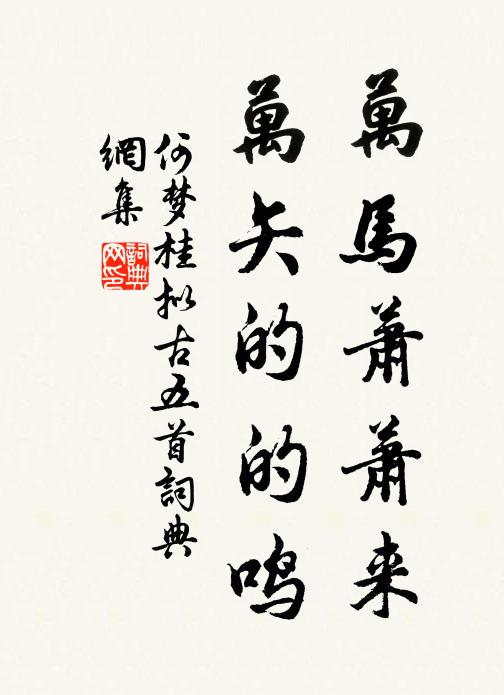 萬馬蕭蕭来
萬矢的的鳴
何梦桂拟古五首詞典
網集
詞典网印